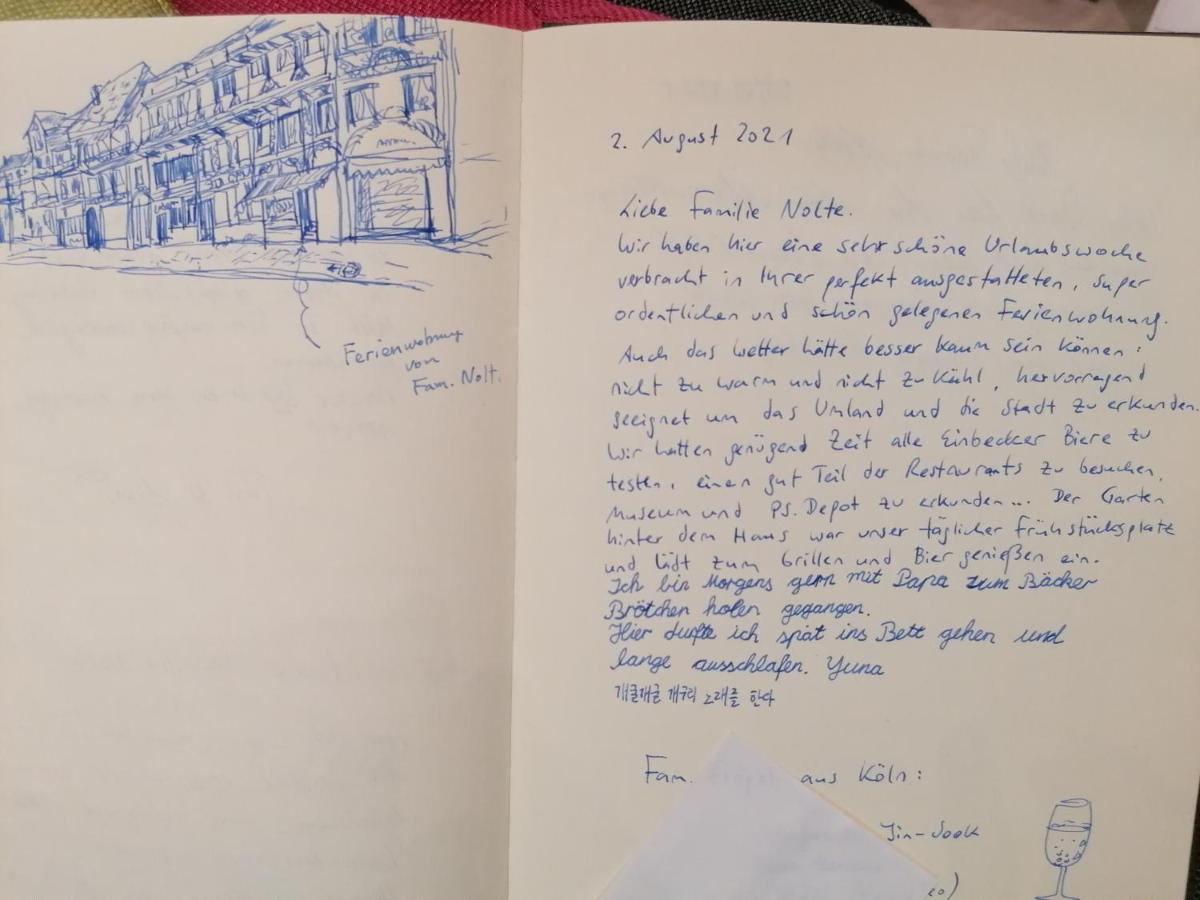 Ferienwohnung
von
Fam. Nolt.
2. August 2021
Liebe Familie Nolte.
Wir haben hier eine sehr schöne Urlaubswoche
verbracht in Ihrer perfekt ausgestatteten, super
ordentlichen und schön gelegenen Ferienwohnung.
Auch das Wetter hätte besser kaum sein können:
nicht zu warm und nicht zu kühl, hervorragend
geeignet um das Umland und die Stadt zu erkunden.
Wir hatten genügend Zeit alle Einbecker Biere zu
testen, einen gut Teil der Restaurants zu besuchen,
Museum und PS. Depot zu erkunden... Der Garten
hinter dem Haus war unser täglicher Frühstücksplatz
und lädt zum Grillen und Bier genießen ein.
Ich bin Morgens gern mit Papa zum Bäcker
Brötchen holen gegangen.
Hier durfte ich spät ins Bett gehen und
lange ausschlafen. Yuna
개굴개굴 개구리 노래를 한다
Fam. aus Köln:
Jin-Sook